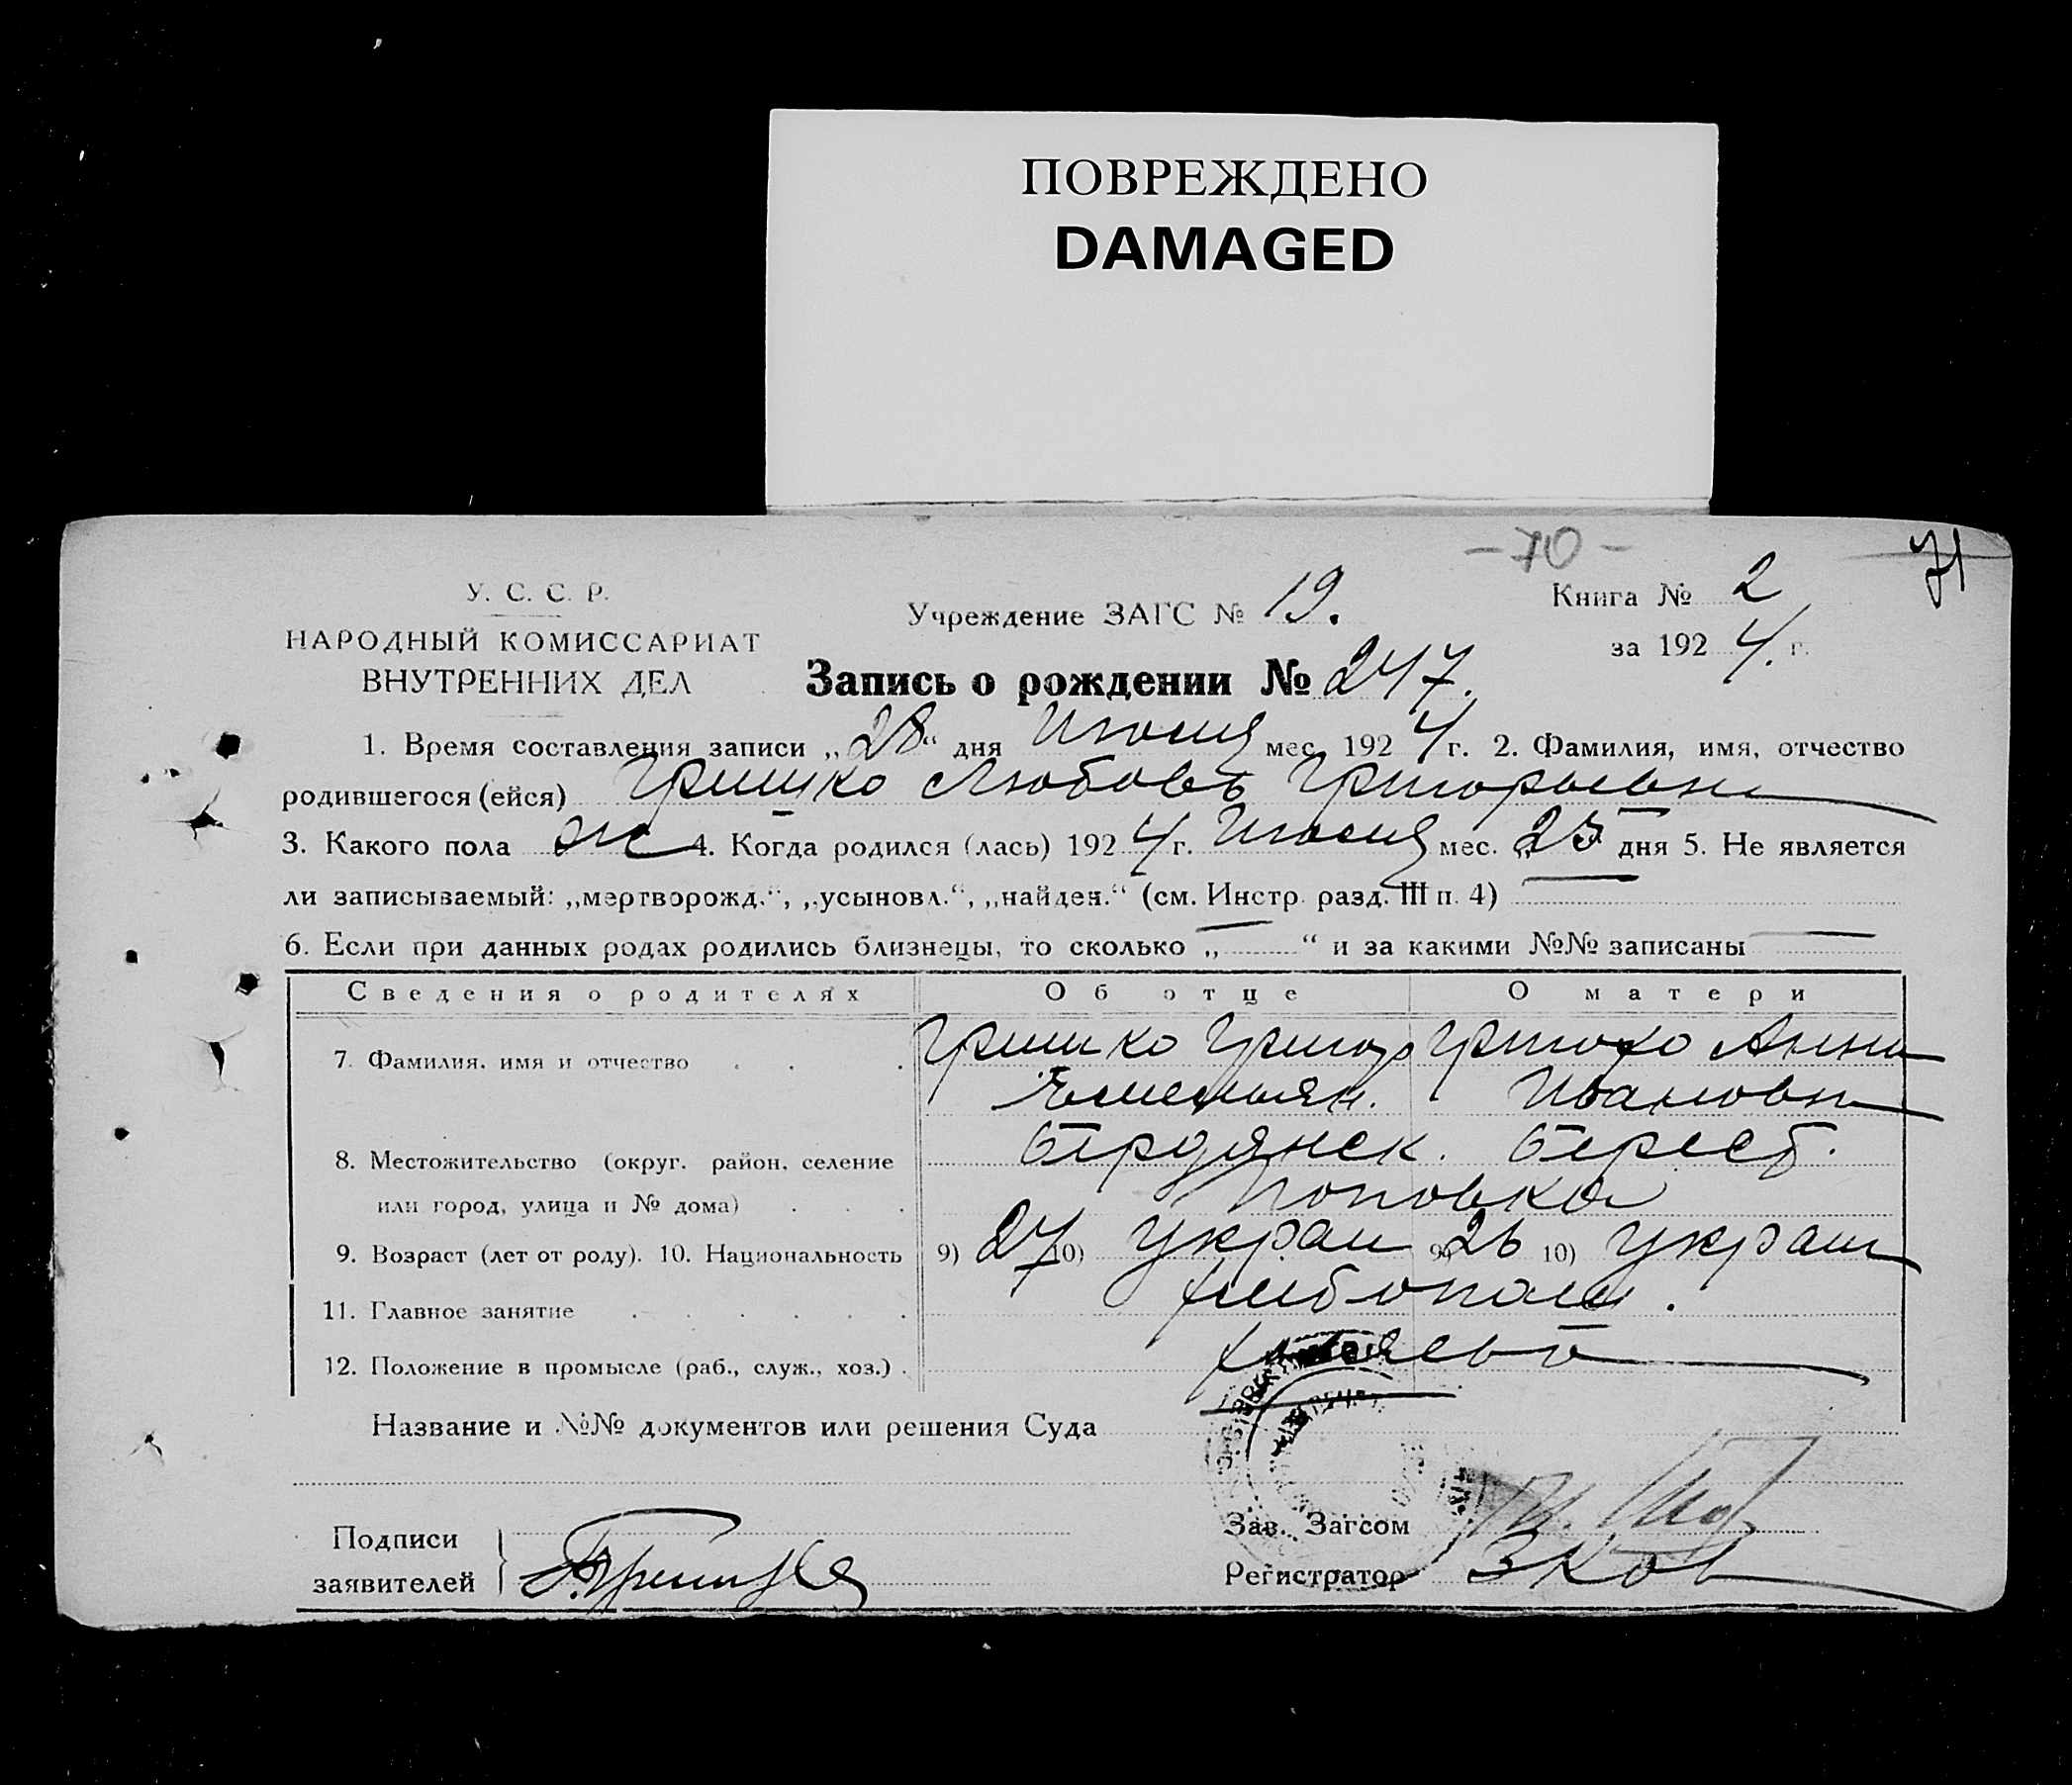 ПОВРЕЖДЕНО
DAMAGED
- 70 -
71
У. С. С. Р.
НАРОДНЫЙ КОМИССАРИАТ
ВНУТРЕННИХ ДЕЛ
Учреждение ЗАГС № 19.
Книга № 2
за 1924. г.
Запись о рождении № 247.
1. Время составления записи „28“ дня мес. 1924 г. 2. Фамилия, имя, отчество
родившегося (ейся) Гришко Любовь Григорьевна
3. Какого пола ж 4. Когда родился (лась) 1924 г. мес. „25 дня 5. Не является
ли записываемый: „мертворожд.“, „усыновл.“, „найден.“ (см. Инстр. разд. III п. 4) —
6. Если при данных родах родились близнецы, то сколько „—“ и за какими №№ записаны —
Сведения о родителях Об отце О матери
7. Фамилия, имя и отчество Гришко Григор Гришко Анна
Емельян. Ивановна
8. Местожительство (округ, район, селение Бердянск. Берест.
или город, улица и № дома) Поповка
9. Возраст (лет от роду). 10. Национальность 9) 27 10) Украин 9) 26 10) Украин
11. Главное занятие хлебопаш.
12. Положение в промысле (раб., служ., хоз.)
Название и №№ документов или решения Суда
Подписи заявителей Гришко
Зав. Загсом
Регистратор